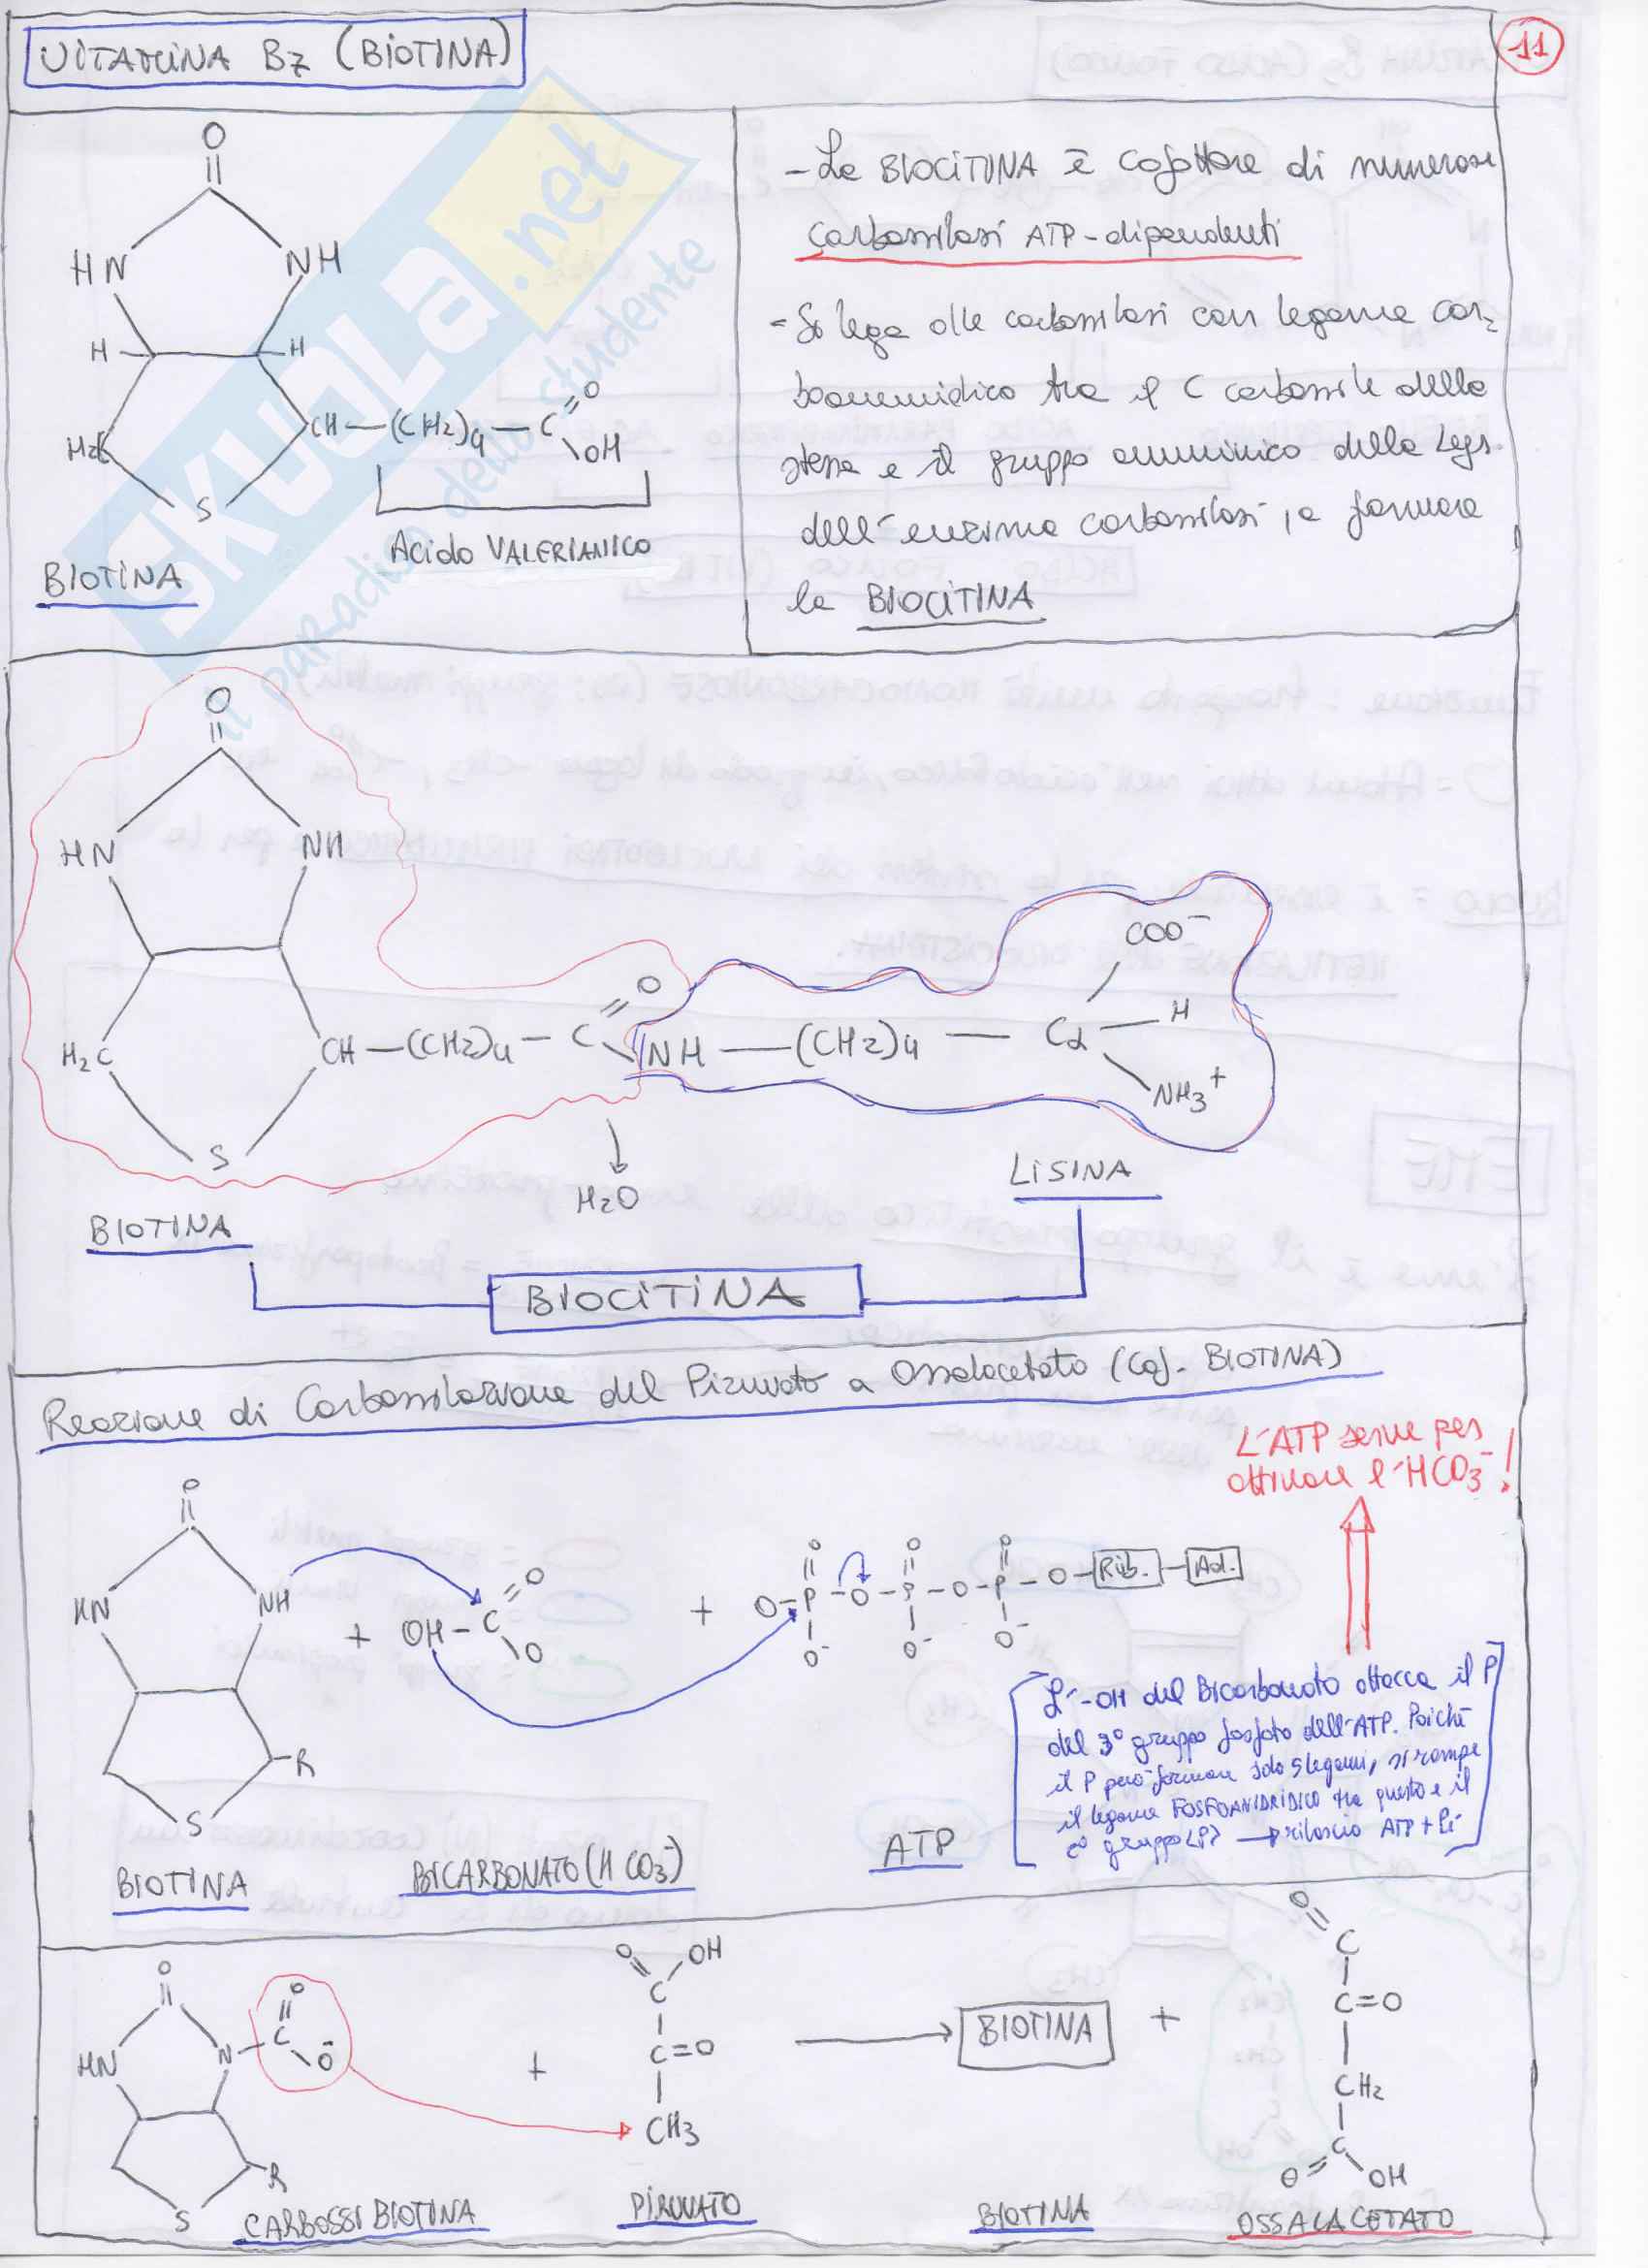 VITAMINA B7 (BIOTINA)
11
O
HN NH
H H
H2C CH-(CH2)4-C O
OH
S
Acido VALERIANICO
BIOTINA
- La BIOCITINA è cofattore di numerose
carbossilasi ATP-dipendenti
- Si lega alle carbossilasi con legame car-
boammidico tra il C carbossile della
stessa e il gruppo amminico della Lys.
dell'enzima carbossilasi, a formare
la BIOCITINA
SKUOLA.net
il paradiso dello studente
O
HN NH
COO-
O
H2C CH-(CH2)4-C NH-(CH2)4-Cα-H
NH3+
S
H2O
LISINA
BIOTINA
BIOCITINA
Reazione di Carbossilazione del Piruvato a Ossalacetato (Cof. BIOTINA)
L'ATP serve per
attivare l'HCO3-!
O
HN NH
+ OH-C O
O
+ O-P-O-P-O-P-O-Rib.-Ad.
O O O
O- O- O-
R
S
L'-OH del Bicarbonato attacca il P
del 3° gruppo fosfato dell'ATP. Poichè
il P può formare solo 5 legami, si rompe
il legame FOSFOANIDRIDICO tra questo e il
2° gruppo → rilascio ATP + Pi
BIOTINA
BICARBONATO (HCO3-)
ATP
O
HN N-C O
O-
R
S
+
O OH
C
C=O
CH3
BIOTINA
+
O
C
C=O
CH2
C
O OH
CARBOSSIBIOTINA
PIRUVATO
BIOTINA
OSSALACETATO